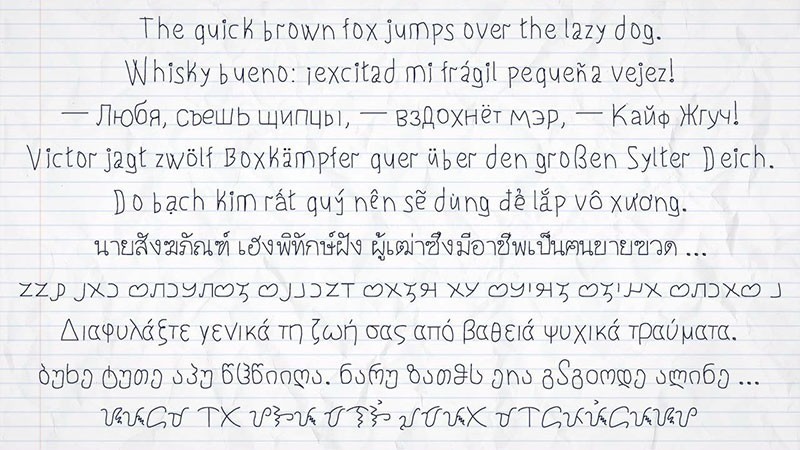 The quick brown fox jumps over the lazy dog.
Whisky bueno: ¡excitad mi frágil pequeña vejez!
— Любя, съешь щипцы, — вздохнёт мэр, — Кайф жгуч!
Victor jagt zwölf Boxkämpfer quer über den großen Sylter Deich.
Do bạch kim rất quý nên sẽ dùng để lắp vô xương.
นายสังฆภัณฑ์ เฮงพิทักษ์ฝั่ง ผู้เฒ่าซึ่งมีอาชีพเป็นฅนขายฃวด ...
Διαφυλάξτε γενικά τη ζωή σας από βαθειά ψυχικά τραύματα.
ბუხე ტუთე აპუ ნარუ ალინე ...